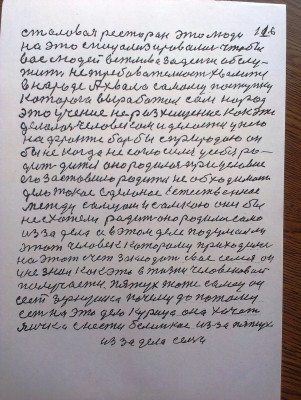 столовая ресторан это люди 116
на это специализировались чтобы
вас людей вежливо за деньги обслу-
жить. не требовательность хвалить
в народе. А хвала самому поступку
которого выработал сам народ
это учение не размещение как это
делалось человеком и делить у него
на фронте борьбы с природою он
бы не когда не согласился у себя ро-
дить дитя оно родилося прицеление
его заставило родить не обходимость
дело такое сделалось естественное
между самцом и самкою они бы
не схотели родить оно родилось само
из за дела а в этом деле подумалось
этот человек которому приходилось
на этот счет заводить свою семью он
и не знал как это в жизни человеком
получается. петух тоже самец он
сест зернушка почему до потому
сет на это дело курица она хочет
яичко снести беленькое из за петуха
из за дела семьи